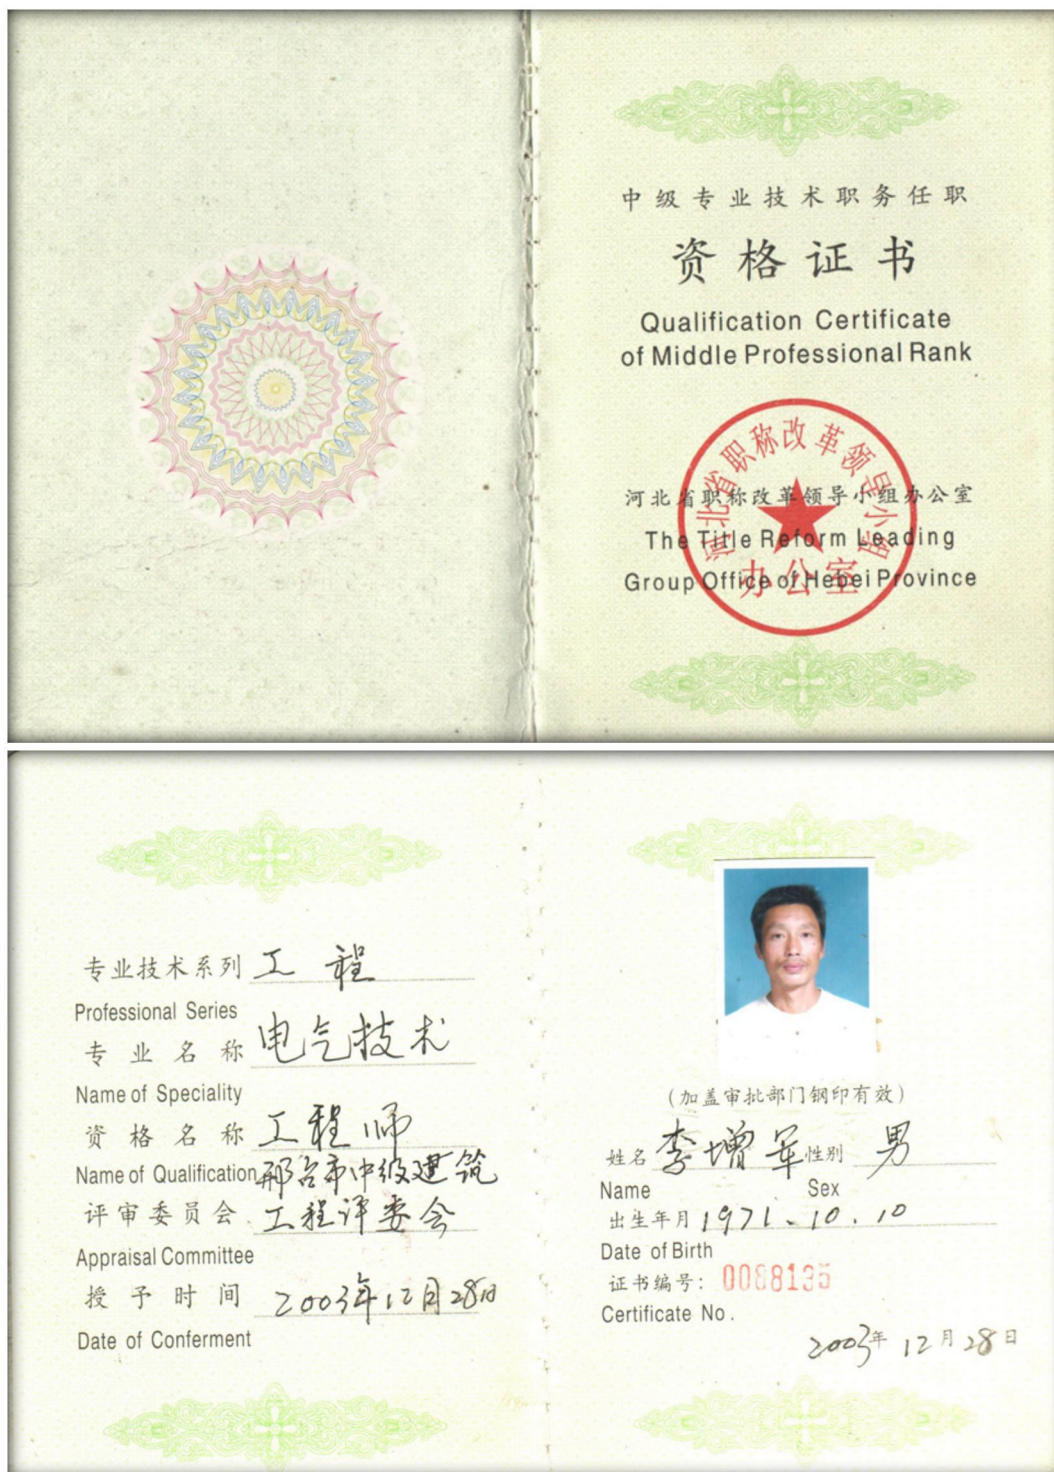 中级专业技术职务任职
资格证书
Qualification Certificate
of Middle Professional Rank
河北省职称改革领导小组
办公室
河北省职称改革领导小组办公室
The Title Reform Leading
Group Office of Hebei Province
专业技术系列 工程
Professional Series
专业名称 电气技术
Name of Speciality
资格名称 工程师
Name of Qualification
邢台市中级建筑
评审委员会 工程评委会
Appraisal Committee
授予时间 2003年12月28日
Date of Conferment
(加盖审批部门钢印有效)
姓名 李增军 性别 男
Name Sex
出生年月 1971.10.10
Date of Birth
证书编号: 0088135
Certificate No.
2003年12月28日